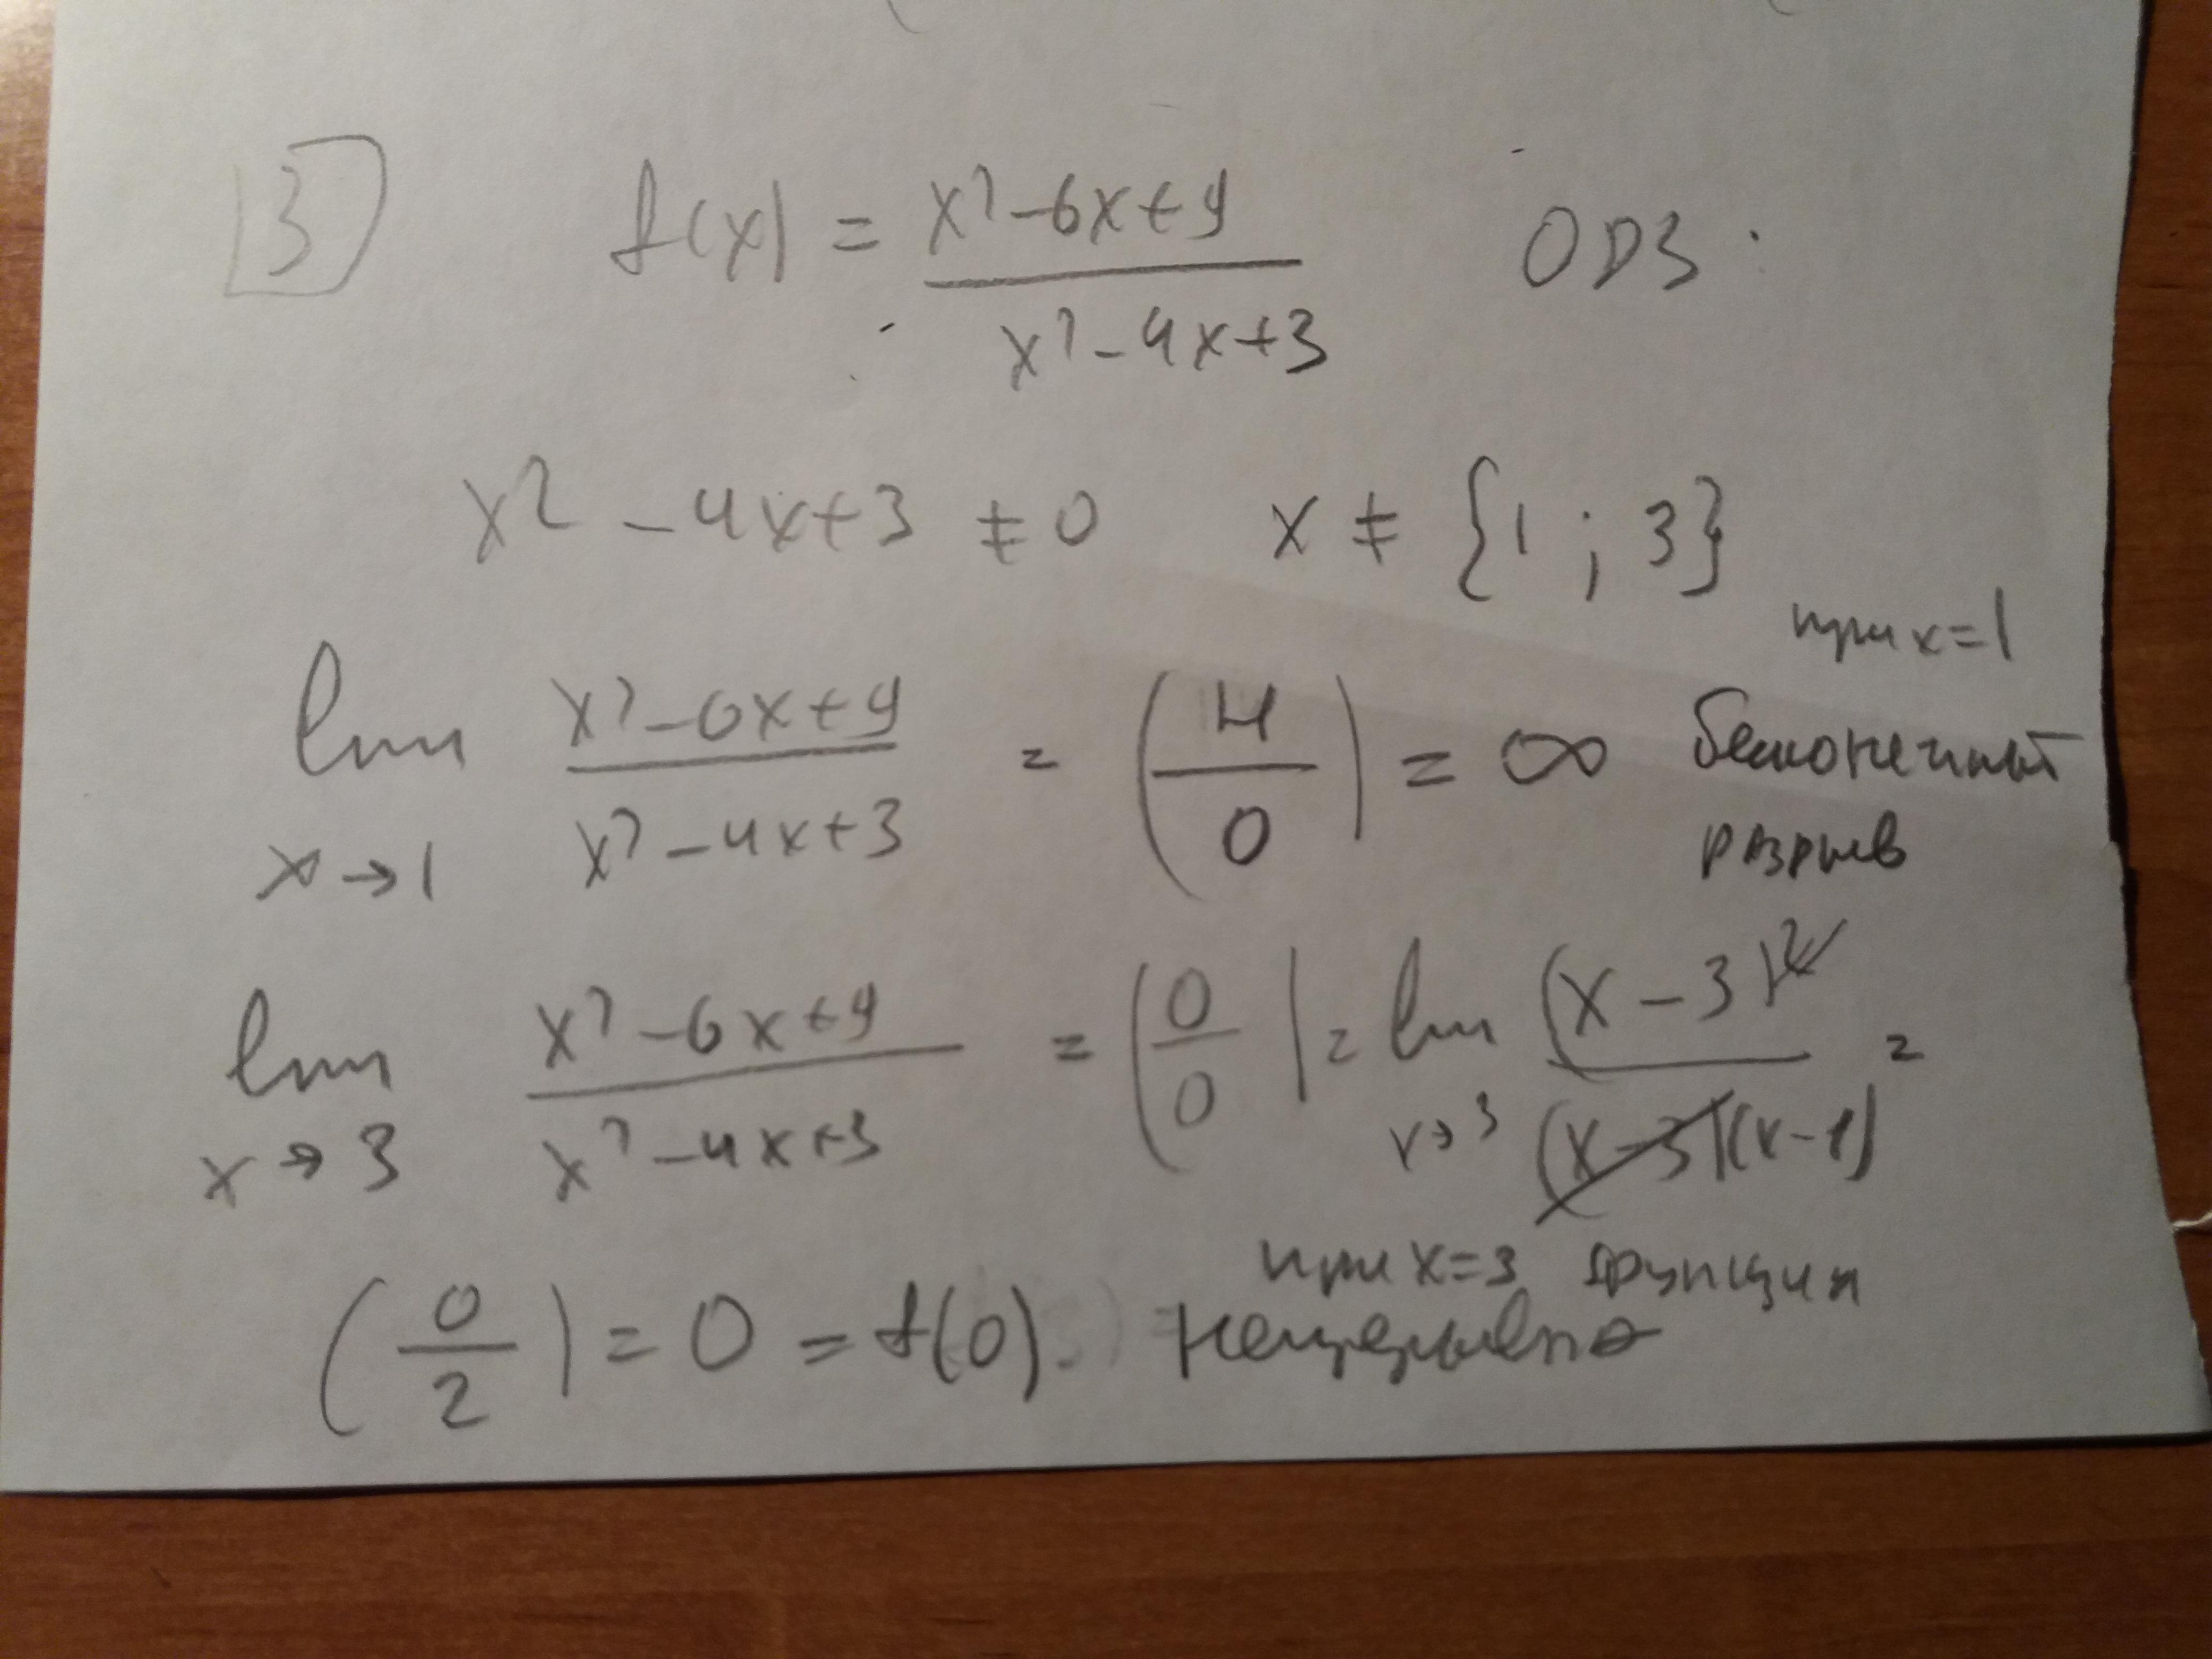 3 f(x) = (x²-6x+9)/(x²-4x+3) ODЗ :
x² - 4x+3 ≠ 0 x ≠ {1 ; 3}
при x=1
lim x→1 (x²-6x+9)/(x²-4x+3) = (4/0) = ∞ бесконечный
разрыв
lim x→3 (x²-6x+9)/(x²-4x+3) = (0/0) = lim x→3 (x-3)²/((x-3)(x-1)) =
при x=3 функция
(0/2) = 0 = f(0). непрерывна